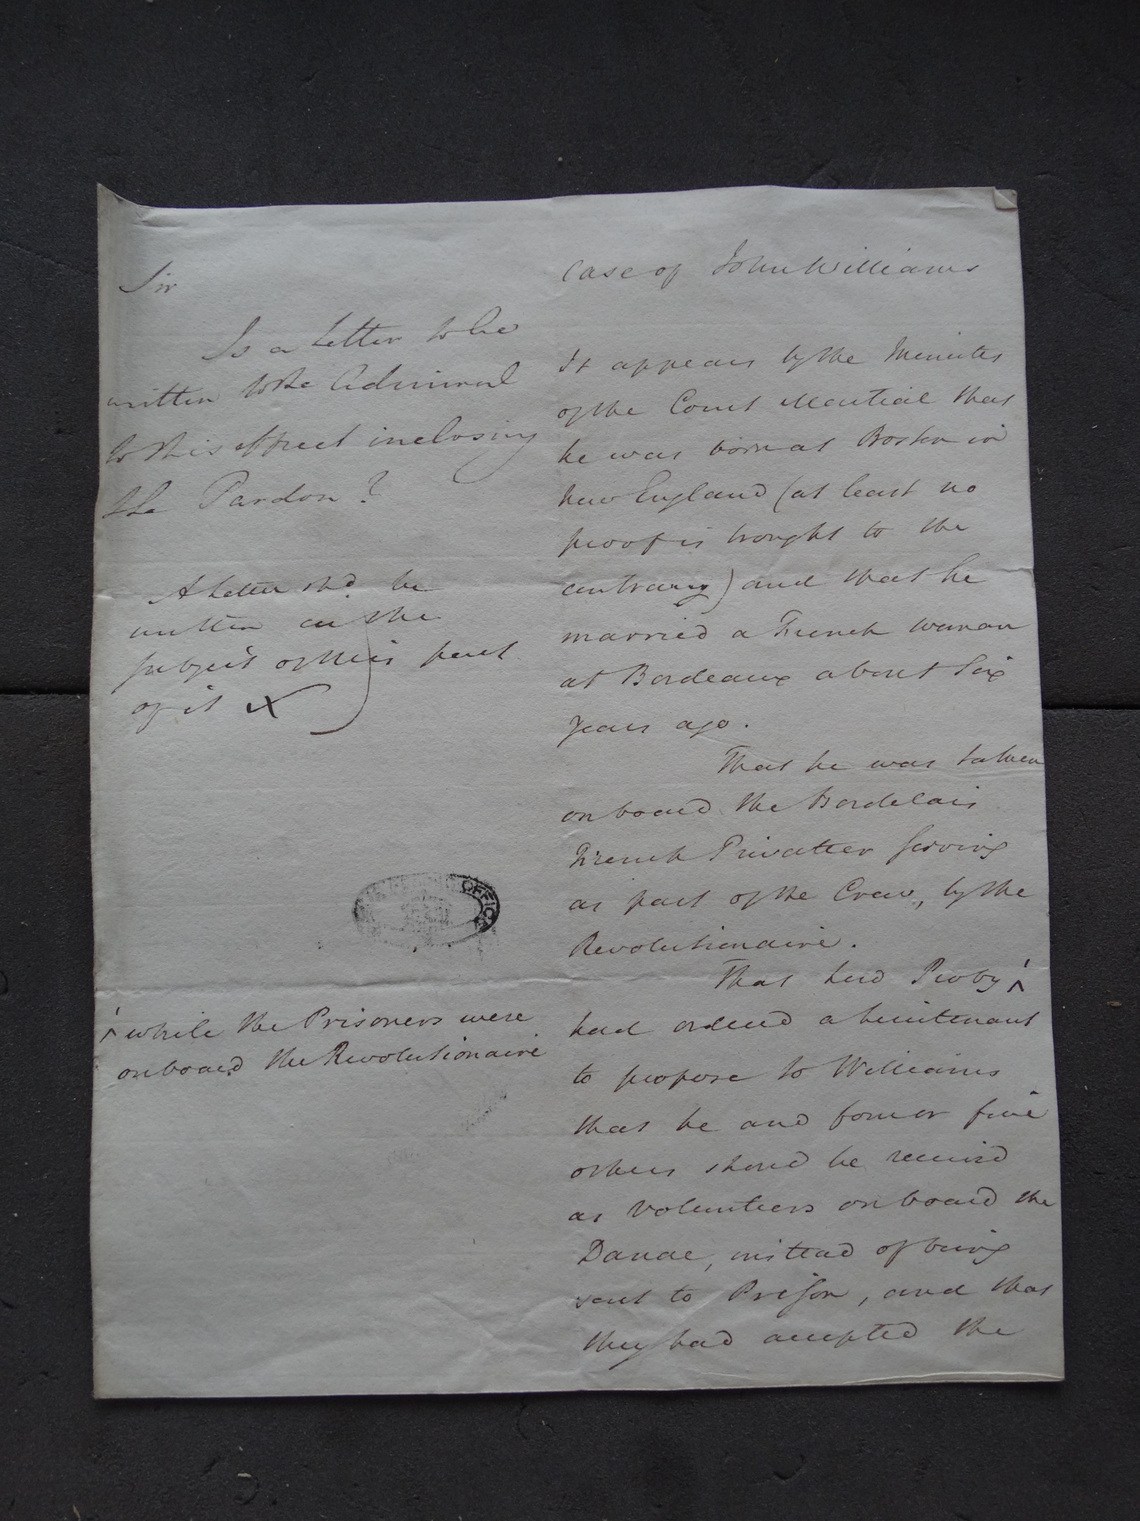 Sir
Is a Letter to be
written to the Admiral
to this effect inclosing
the Pardon?
A Letter shd. be
written on the
subject of this part
of it X
^ while the Prisoners were
on board the Revolutionaire
OFFICE
Case of John Williams
It appears by the Minutes
of the Court Martial that
he was born at Boston in
New England (at least no
proof is brought to the
contrary) and that he
married a French woman
at Bordeaux about Six
years ago.
That he was taken
on board the Bordelais
French Privateer serving
as part of the Crew, by the
Revolutionaire.
That Lord Proby ^
had ordered a Lieutenant
to propose to Williams
that he and four or five
others should be received
as Volunteers on board the
Danae, instead of being
sent to Prison, and that
they had accepted the